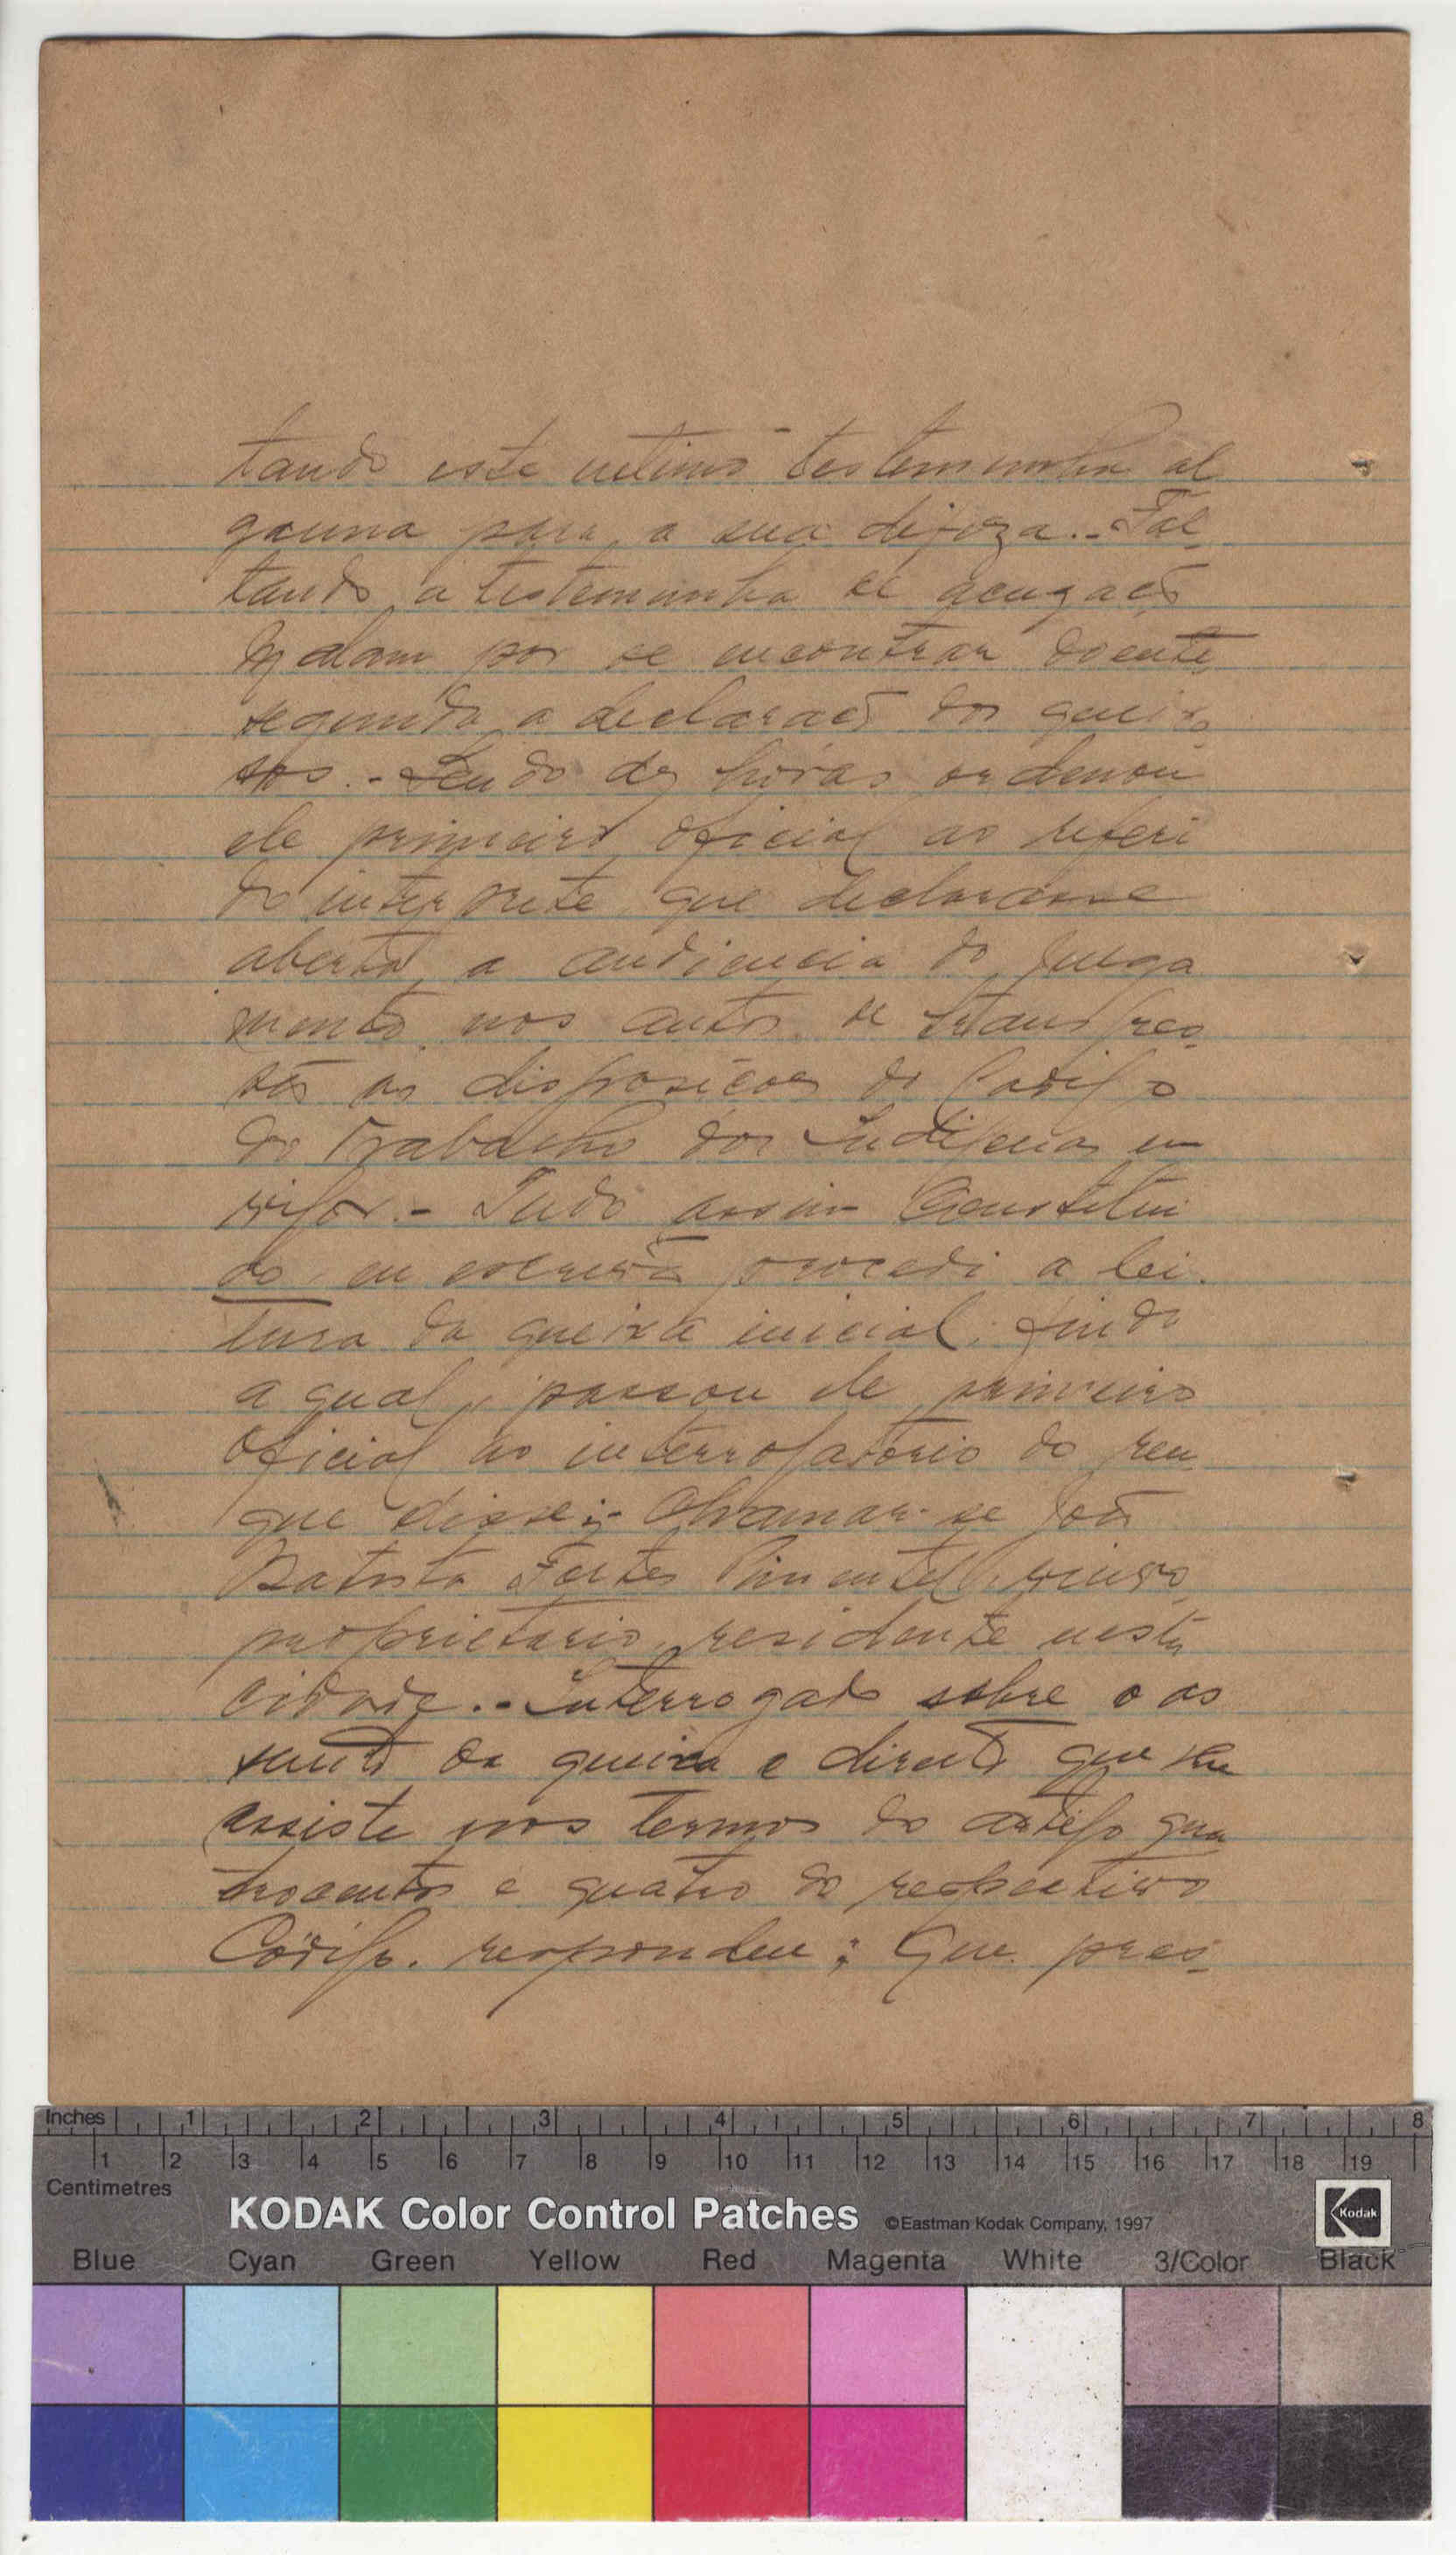 tando este ultimo testemunha al
guma para a sua defeza. - Fal
tando a testemunha de acuzação
por se encontrar doente
segundo a declaração dos queixo
sos. - Sendo dez horas ordenou
ele primeiro oficial ao referi
do interprete que declarasse
aberta a audiencia do julga
mento nos autos de transgres
são as disposições do Codigo
do Trabalho dos Indigenas em
vigor. - Tudo assim Constitui
do, eu escrivão procedi a lei
tura da queixa inicial, finda
a qual, passou ele primeiro
oficial ao interrogatorio do reu
que disse: - Chamar-se João
Batista Fortes Pimentel, viuvo,
proprietario, residente nesta
cidade. - Interrogado sobre o as
sunto da queixa e direito que lhe
assiste nos termos do artigo qua
trocentos e quatro do respectivo
Codigo. respondeu: Que pres
Inches 1 2 3 4 5 6 7 8
1 2 3 4 5 6 7 8 9 10 11 12 13 14 15 16 17 18 19
Centimetres
KODAK Color Control Patches ©Eastman Kodak Company, 1997 Kodak
Blue Cyan Green Yellow Red Magenta White 3/Color Black